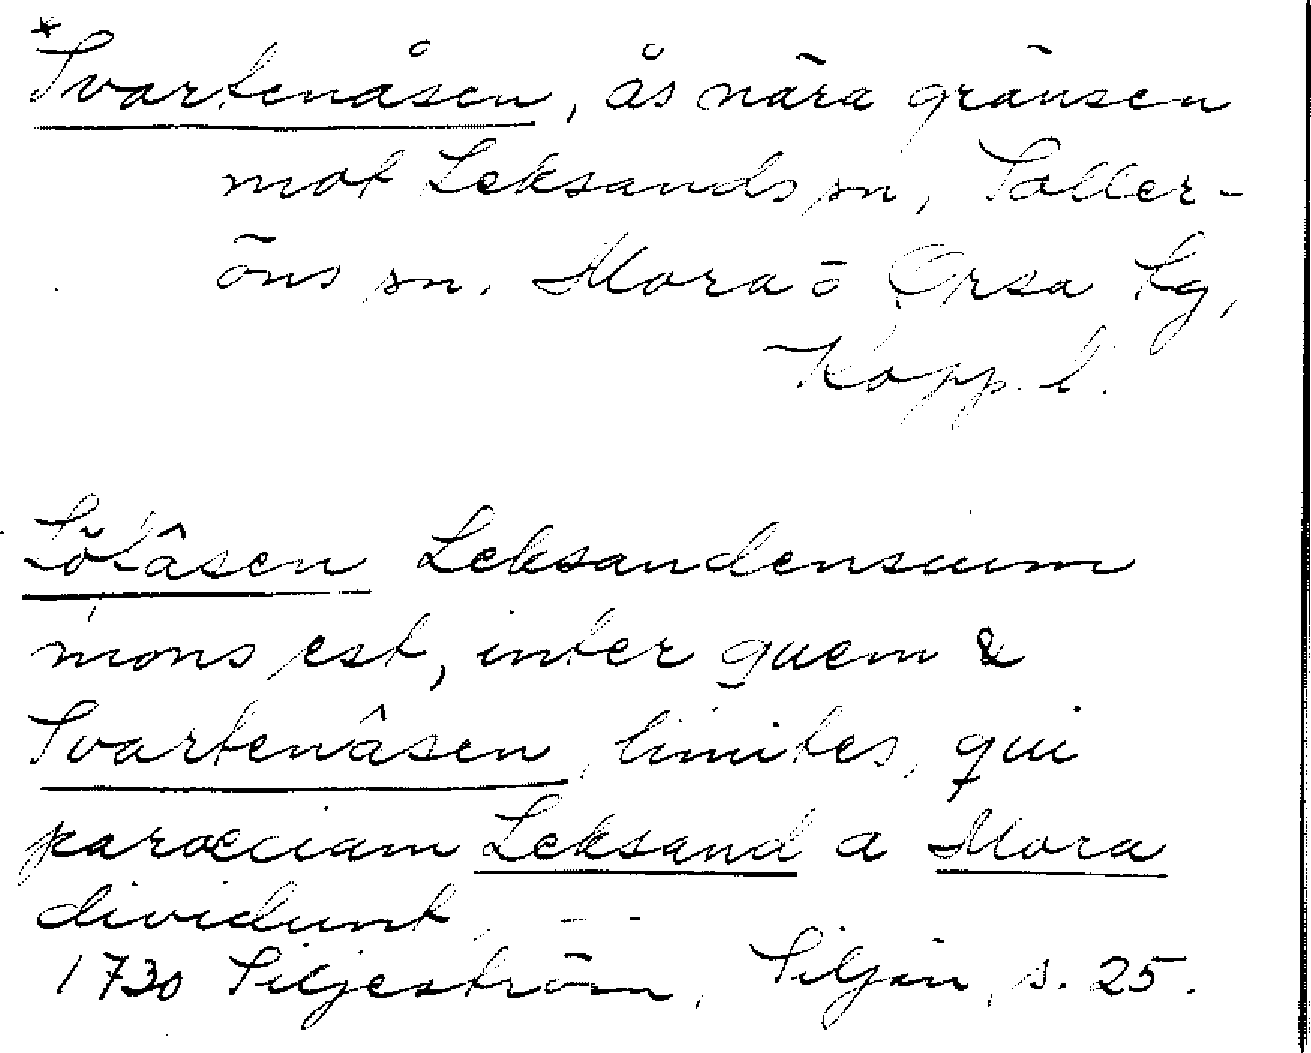 *Svartenåsen, ås nära gränsen
mot Leksands sn, Soller-
öns sn. Mora o Orsa tg,
Kopp. l.
Lötâsen Leksandensium
mons est, inter quem &
Svartenâsen, limites, qui
paroeciam Leksand a Mora
dividunt, - -
1730 Siljeström, Siljan, s. 25.